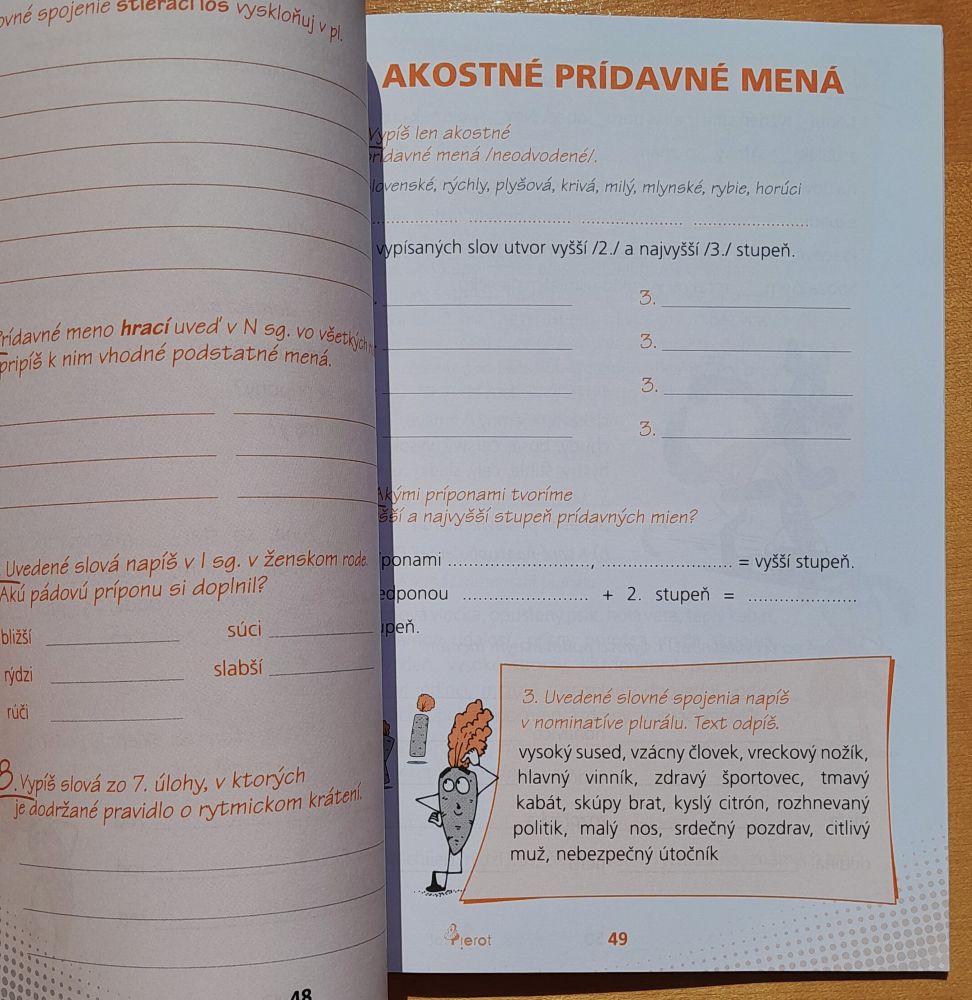 spojenie stierací los vyskloňuj v pl.
Prídavné meno hrací uveď v N sg. vo všetkých
pripíš k nim vhodné podstatné mená.
Uvedené slová napíš v I sg. v ženskom rode.
Akú pádovú príponu si doplnil?
bližší súci
rýdzi slabší
rúči
8. Vypíš slová zo 7. úlohy, v ktorých
je dodržané pravidlo o rytmickom krátení.
48
AKOSTNÉ PRÍDAVNÉ MENÁ
Vypíš len akostné
prídavné mená /neodvodené/.
lovenské, rýchly, plyšová, krivá, milý, mlynské, rybie, horúci
vypísaných slov utvor vyšší /2./ a najvyšší /3./ stupeň.
3.
3.
3.
3.
Akými príponami tvoríme
šší a najvyšší stupeň prídavných mien?
íponami ........................., ......................... = vyšší stupeň.
edponou ......................... + 2. stupeň = .....................
upeň.
3. Uvedené slovné spojenia napíš
v nominatíve plurálu. Text odpíš.
vysoký sused, vzácny človek, vreckový nožík,
hlavný vinník, zdravý športovec, tmavý
kabát, skúpy brat, kyslý citrón, rozhnevaný
politik, malý nos, srdečný pozdrav, citlivý
muž, nebezpečný útočník
Pierot 49